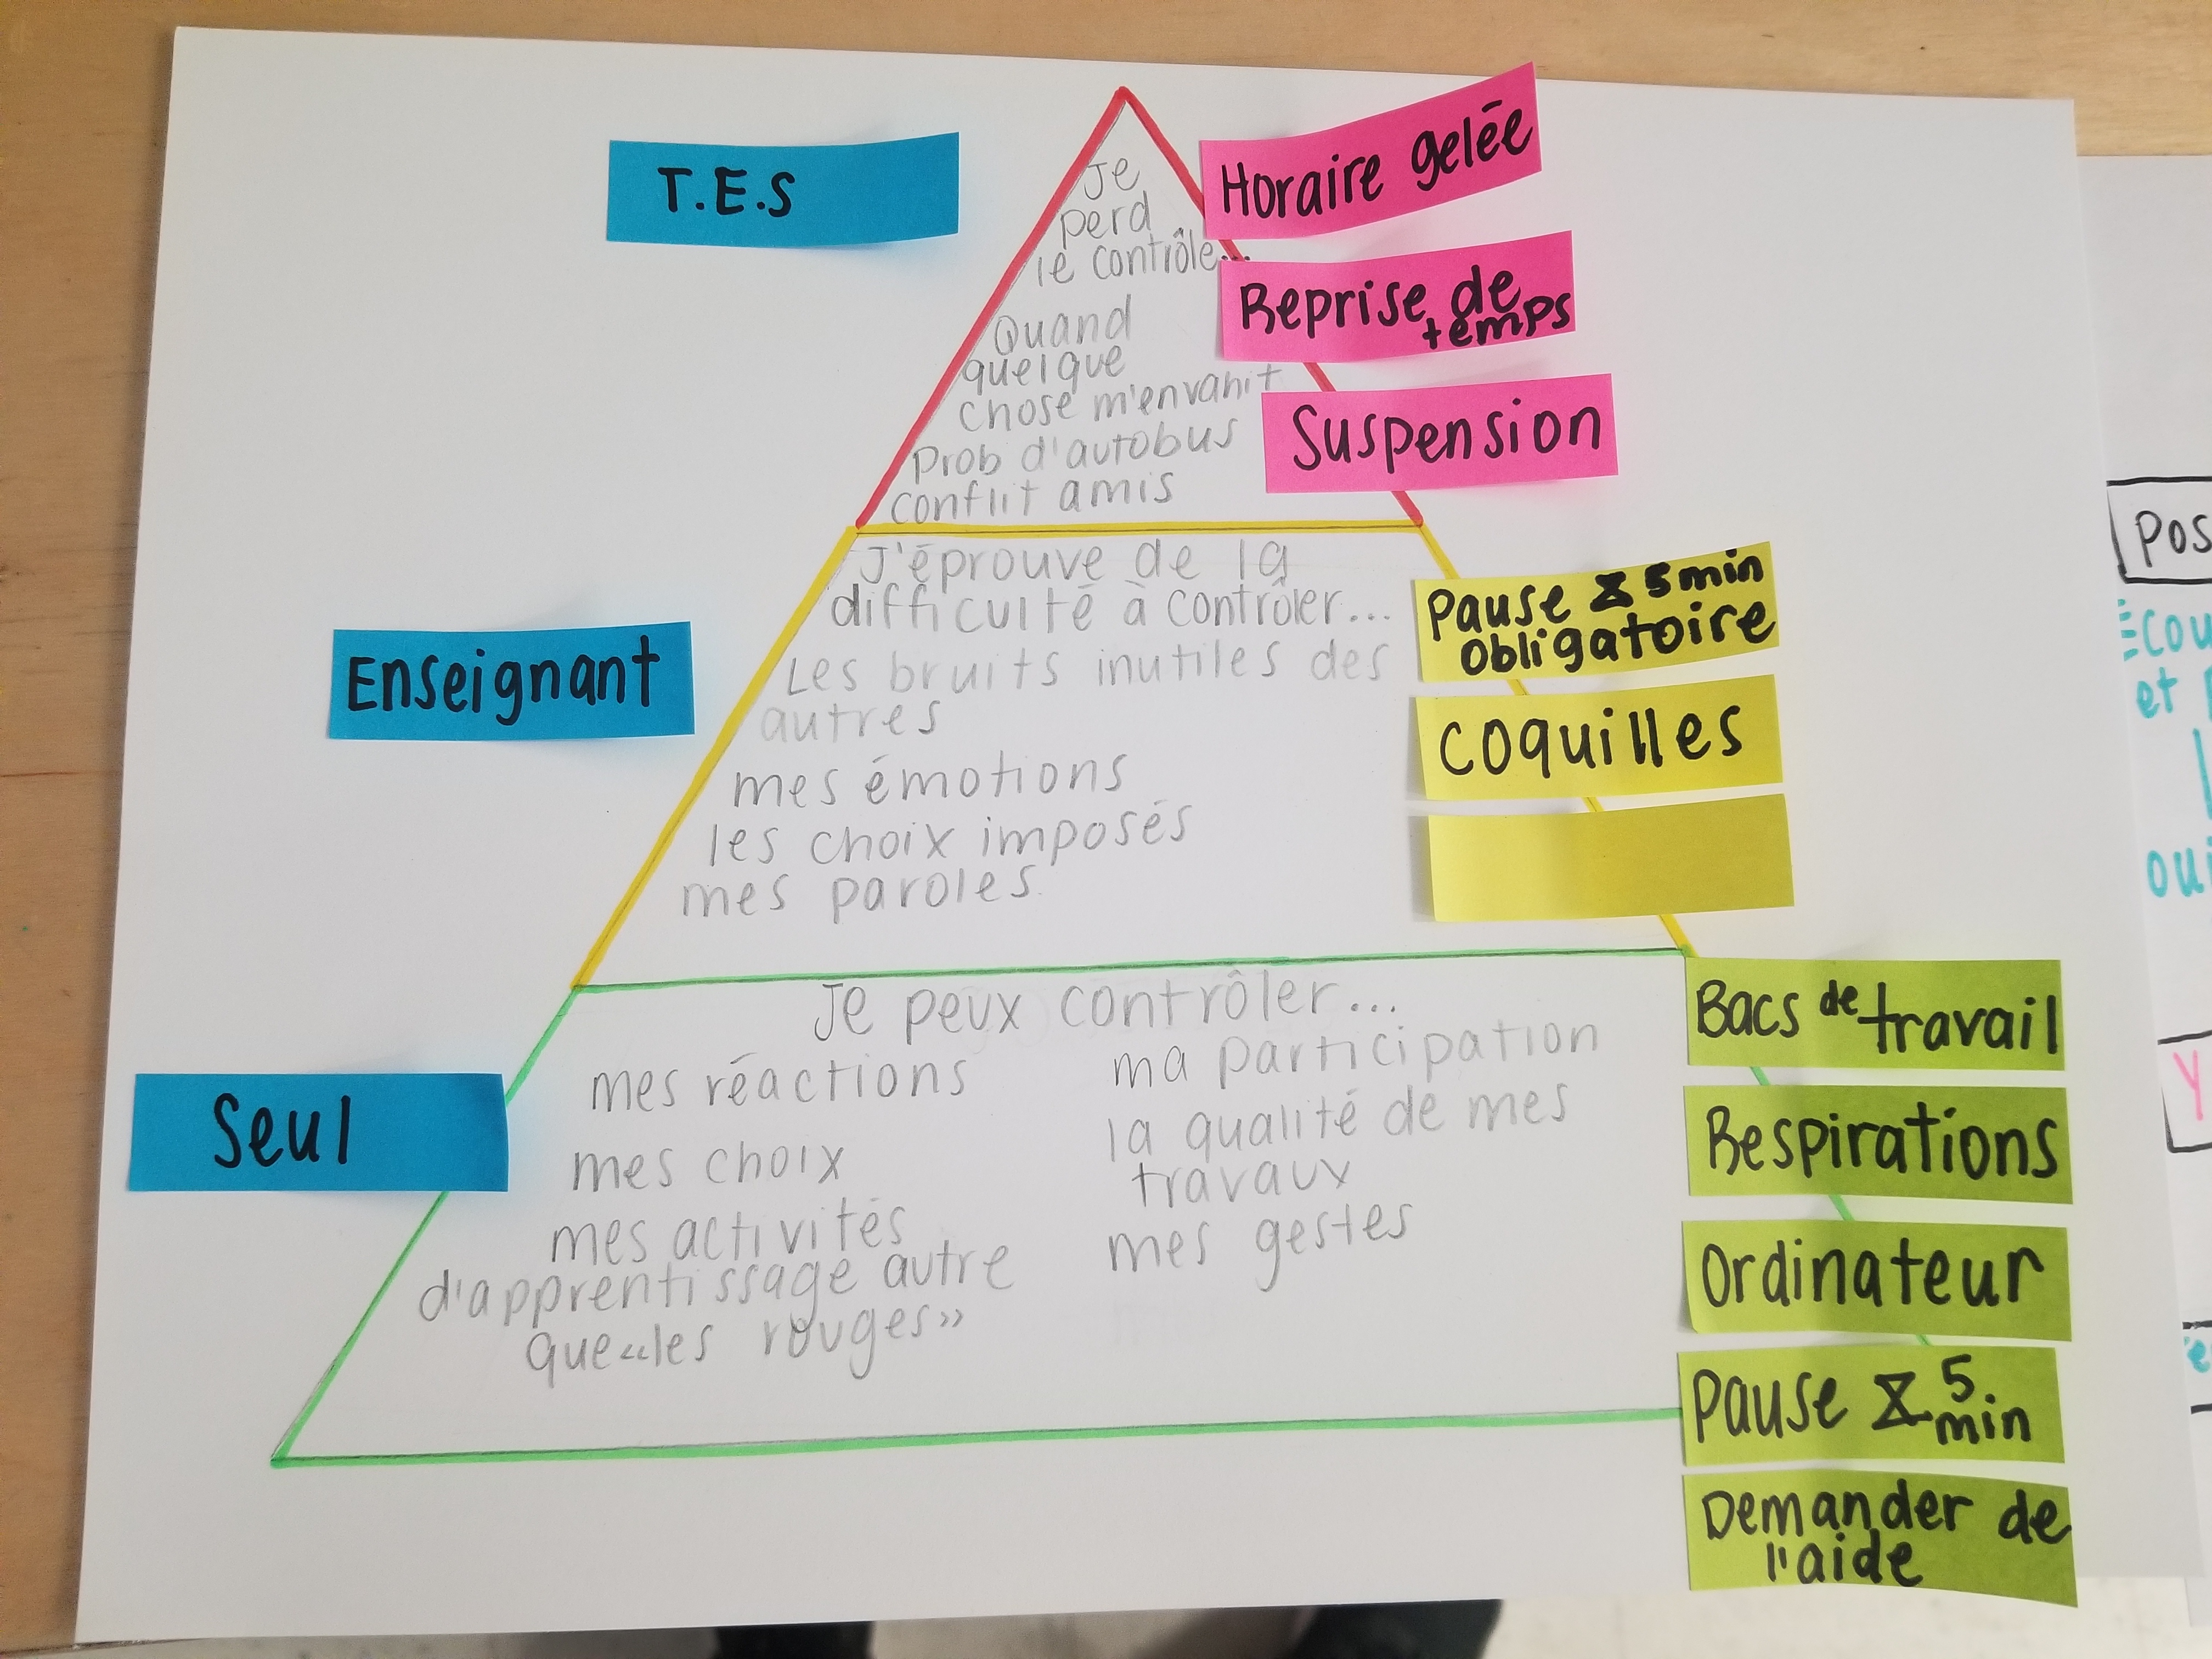 T.E.S
Je
perd
le contrôle...
Quand
quelque
chose m'envahit
Prob d'autobus
conflit amis
Horaire gelée
Reprise de
temps
Suspension
Enseignant
J'éprouve de la
difficulté à contrôler...
Les bruits inutiles des
autres
mes émotions
les choix imposés
mes paroles.
Pause 5 min
Obligatoire
Coquilles
Seul
Je peux contrôler...
mes réactions
mes choix
mes activités
d'apprentissage autre
que «les rouges»
ma participation
la qualité de mes
travaux
mes gestes
Bacs de travail
Respirations
Ordinateur
Pause 5
min
Demander de
l'aide
Pos
et
oui
Y